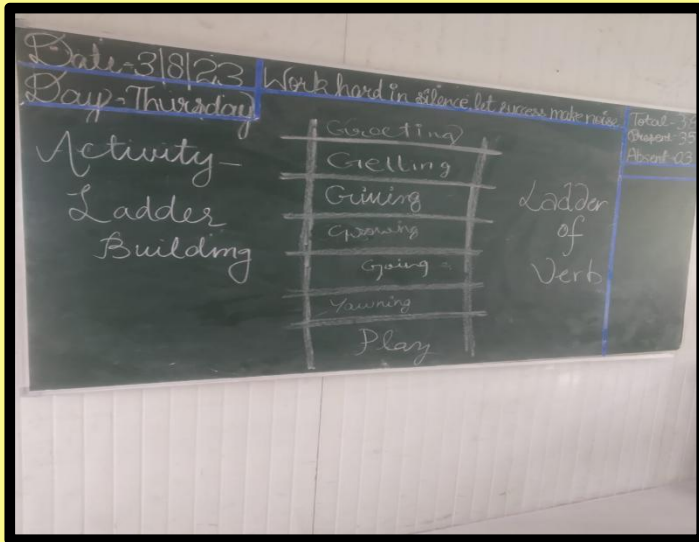 Date-3|8|23
Day-Thursday
Work hard in silence let success make noise
Total-38
Present-35
Absent-03
Activity-
Ladder
Building
Greeting
Getting
Giving
Growing
Going
Yawning
Play
Ladder
of
Verb